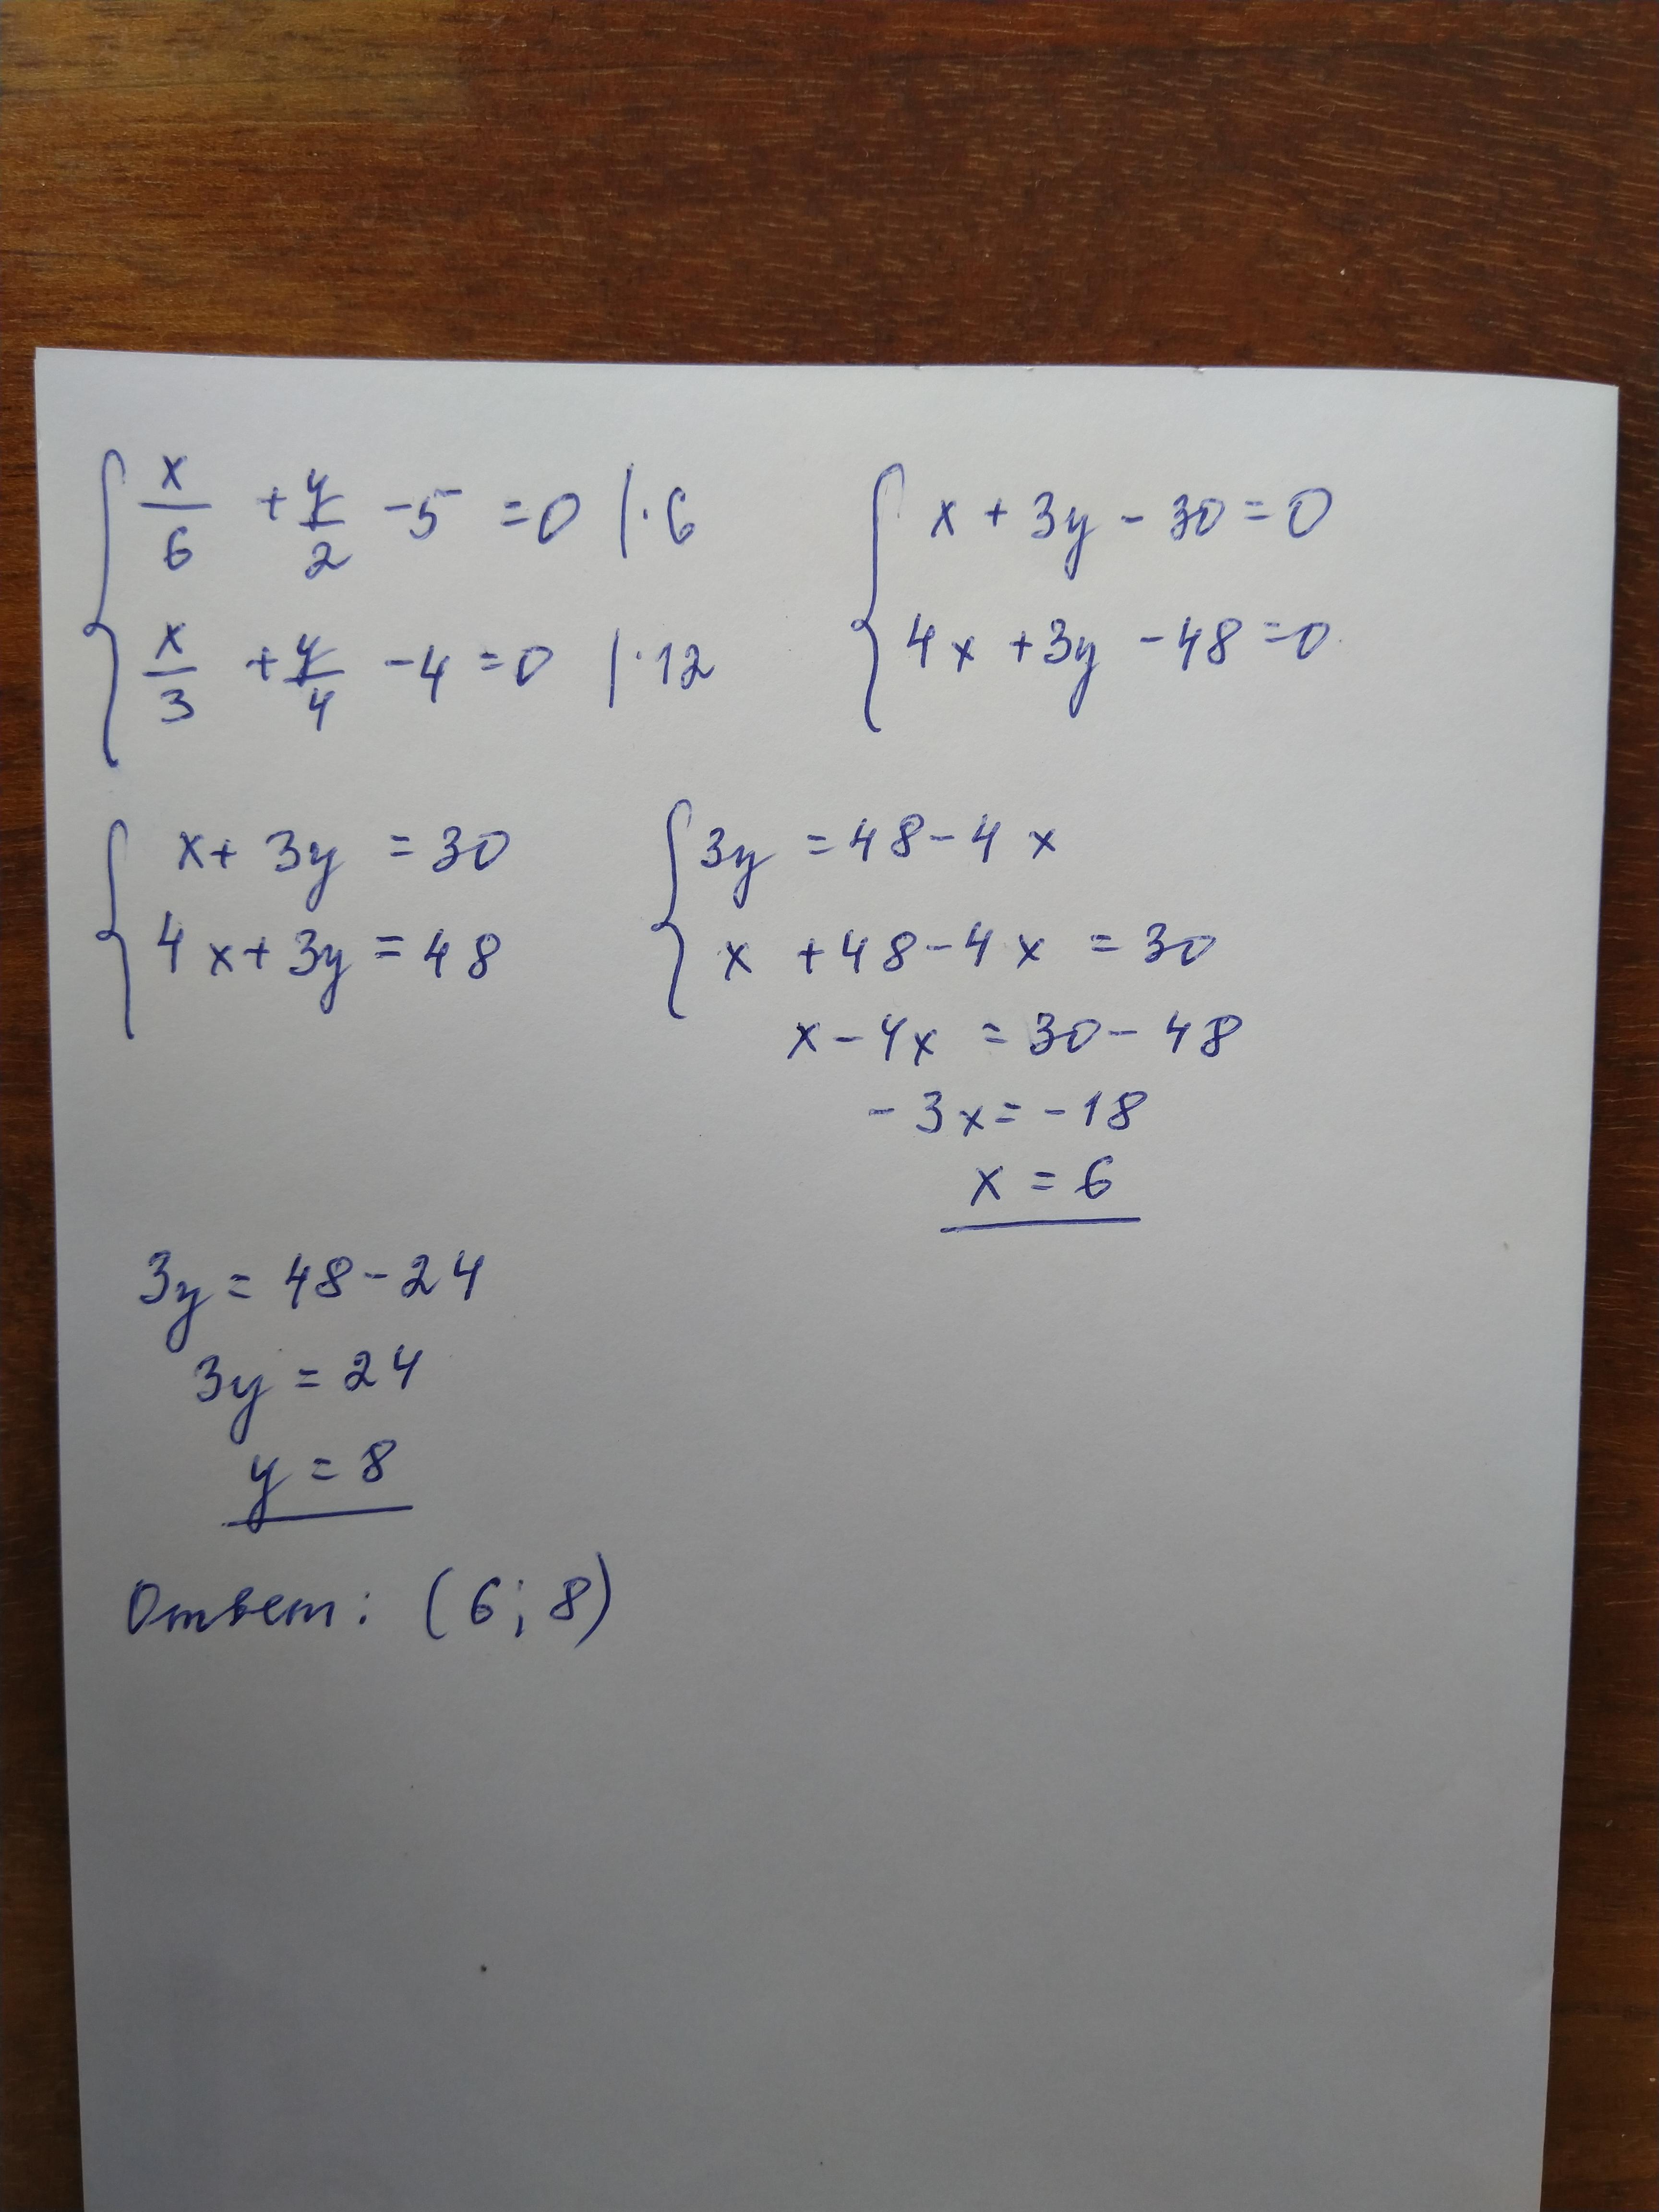 x/6 + y/2 - 5 = 0 | · 6
x/3 + y/4 - 4 = 0 | · 12
x + 3y - 30 = 0
4x + 3y - 48 = 0
x + 3y = 30
4x + 3y = 48
3y = 48 - 4x
x + 48 - 4x = 30
x - 4x = 30 - 48
- 3x = - 18
x = 6
3y = 48 - 24
3y = 24
y = 8
Ответ: (6; 8)